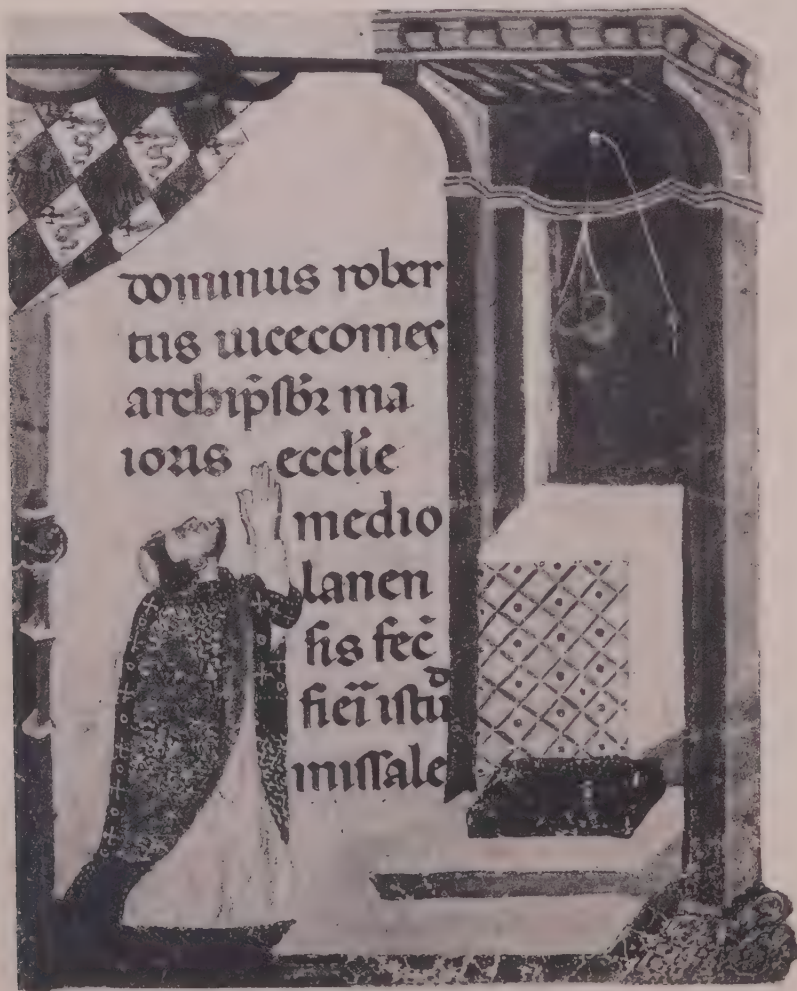 dominus rober
tus uicecomes
archip̄sb̄r ma
ioris eccl̄ie
medio
lanen
sis fec̄
fieri istud
missale